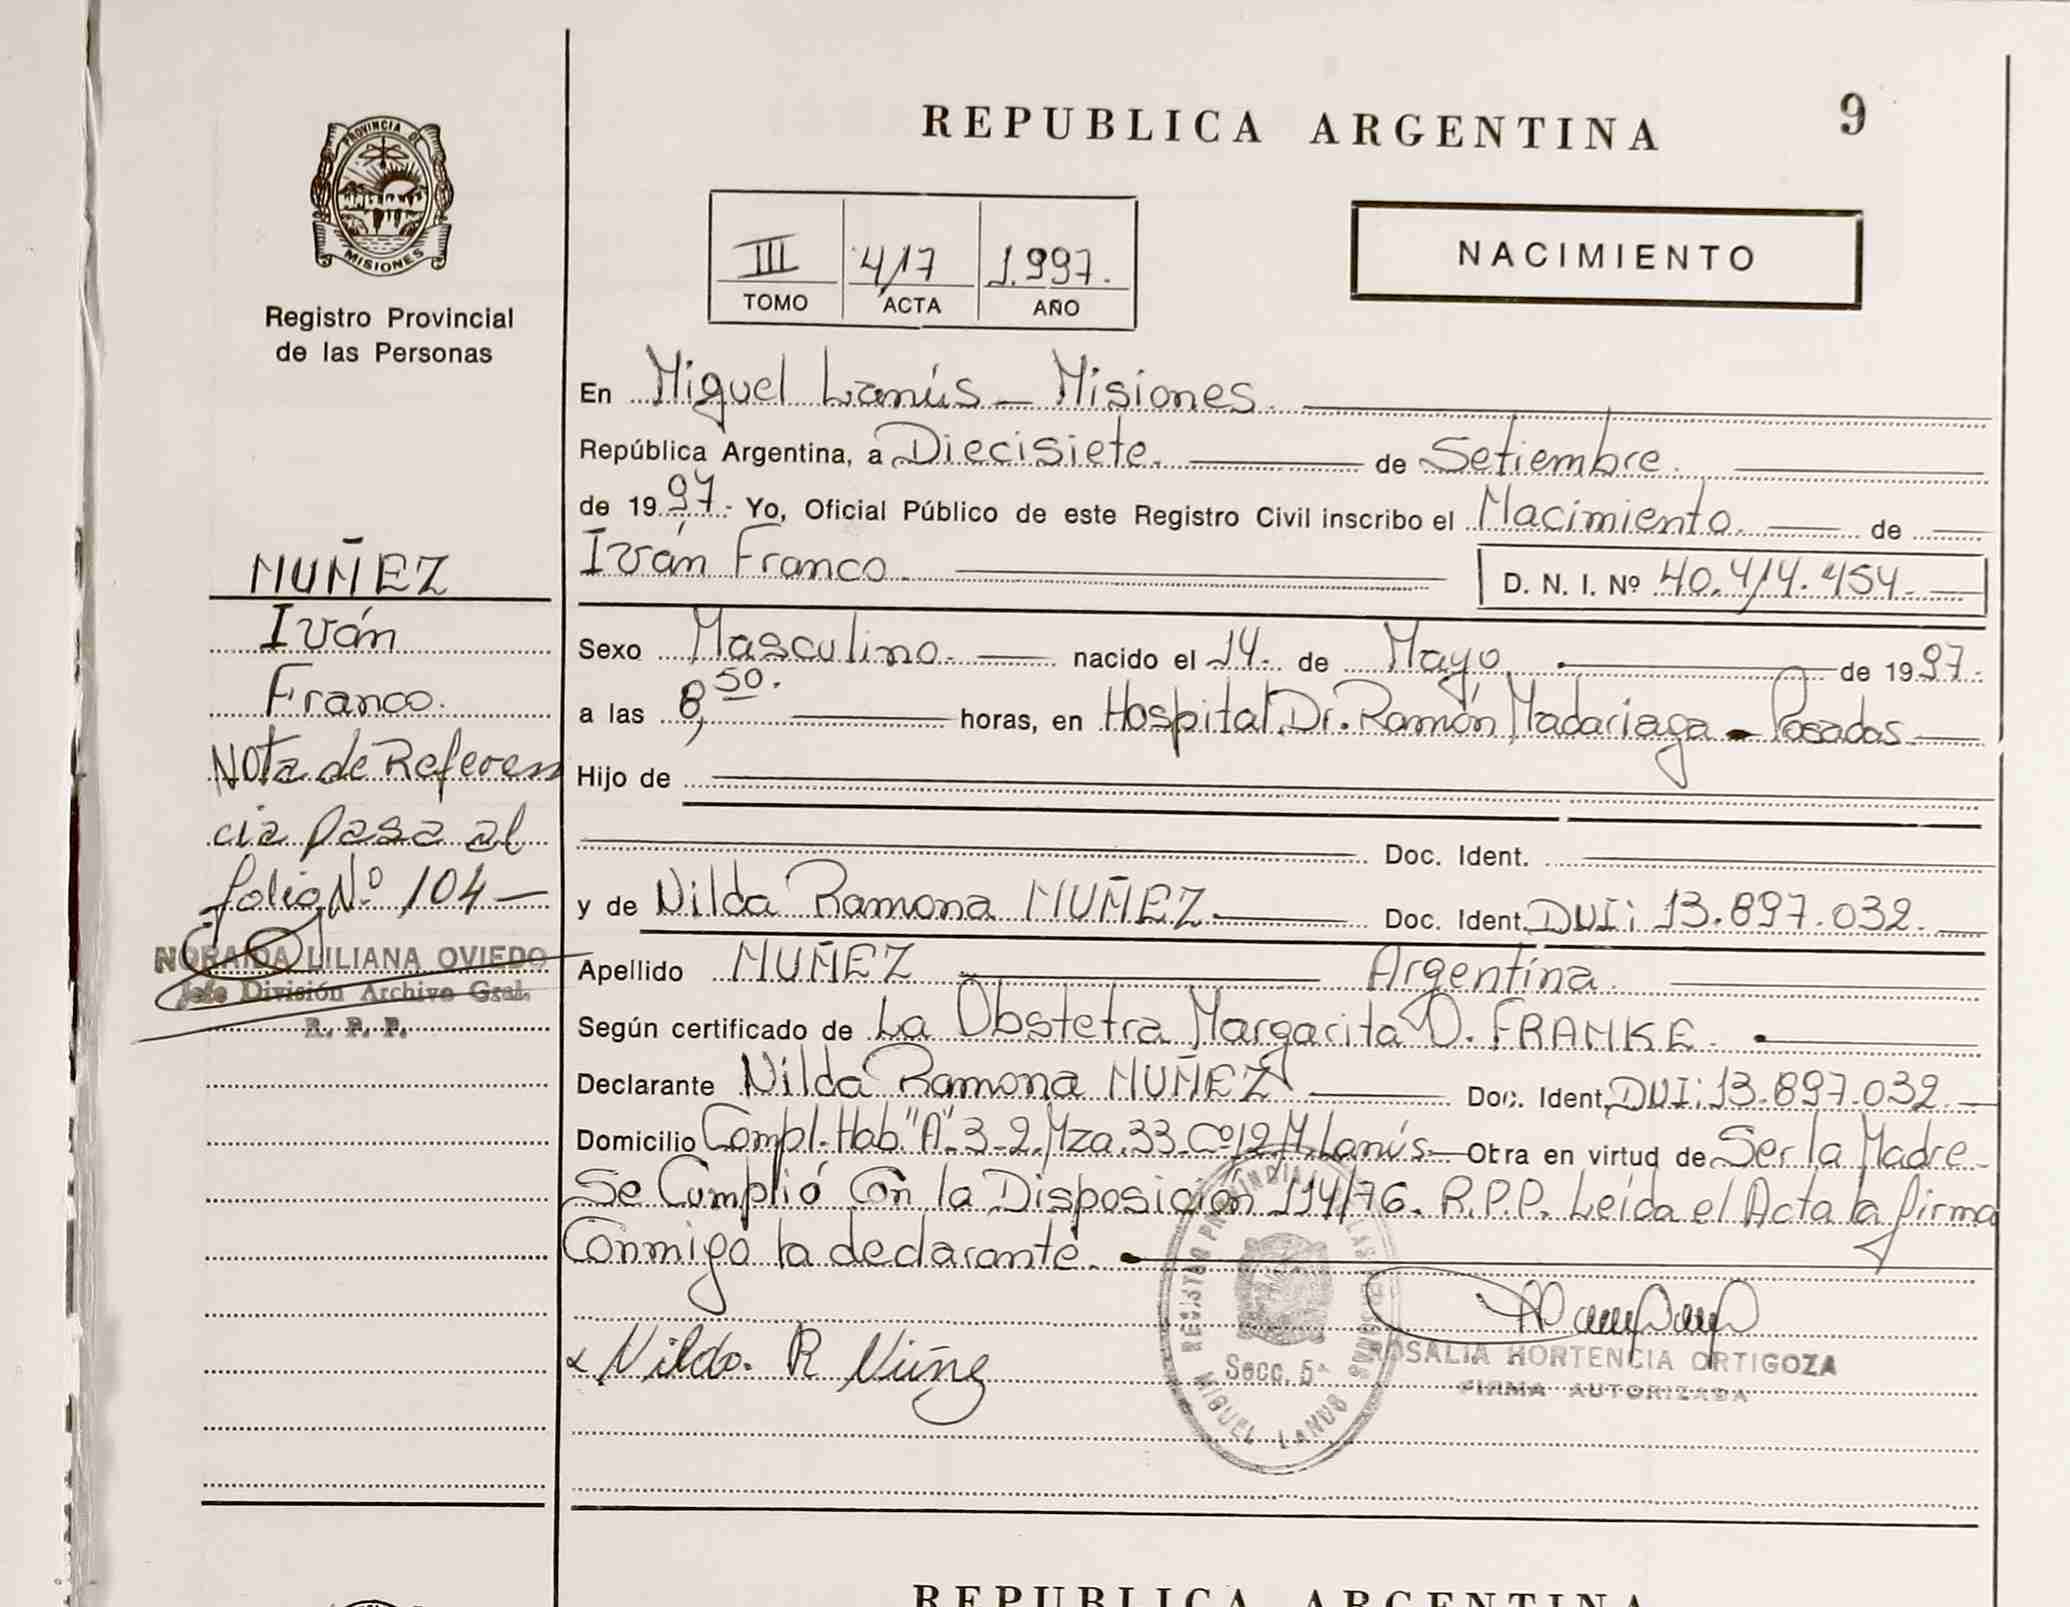 REPUBLICA ARGENTINA
9
PROVINCIA DE
MISIONES
Registro Provincial
de las Personas
III 417 1.997.
TOMO ACTA AÑO
NACIMIENTO
En Miguel Lanús - Misiones.
República Argentina, a Diecisiete. de Setiembre.
de 1997.- Yo, Oficial Público de este Registro Civil inscribo el Nacimiento. de
Iván Franco. D. N. I. Nº 40.414.454.
Sexo Masculino. nacido el 14. de Mayo de 1997.
a las 8,50. horas, en Hospital Dr. Ramón Madariaga - Posadas.
Hijo de
Doc. Ident.
y de Nilda Ramona NUÑEZ. Doc. Ident. DNI: 13.897.032.
Apellido NUÑEZ Argentina.
Según certificado de La Obstetra Margarita D. FRANKE.
Declarante Nilda Ramona NUÑEZ Doc. Ident. DNI: 13.897.032.
Domicilio Compl. Hab. "A" 3-2. Mza. 33. Cº12 M. Lanús Obra en virtud de Ser la Madre
Se Cumplió Con la Disposición 114/76. R.P.P. Leída el Acta la firma
Conmigo la declarante.
Nilda. R Núñez
REGISTRO PROVINCIAL DE LAS PERSONAS
Secc. 5ª
MIGUEL LANUS
ROSALIA HORTENCIA ORTIGOZA
FIRMA AUTORIZADA
NUÑEZ
Iván
Franco.
Nota de Referen
cia pasa al
folio Nº 104-
NORAIDA LILIANA OVIEDO
Jefe División Archivo Gral.
R. P. P.
REPUBLICA ARGENTINA